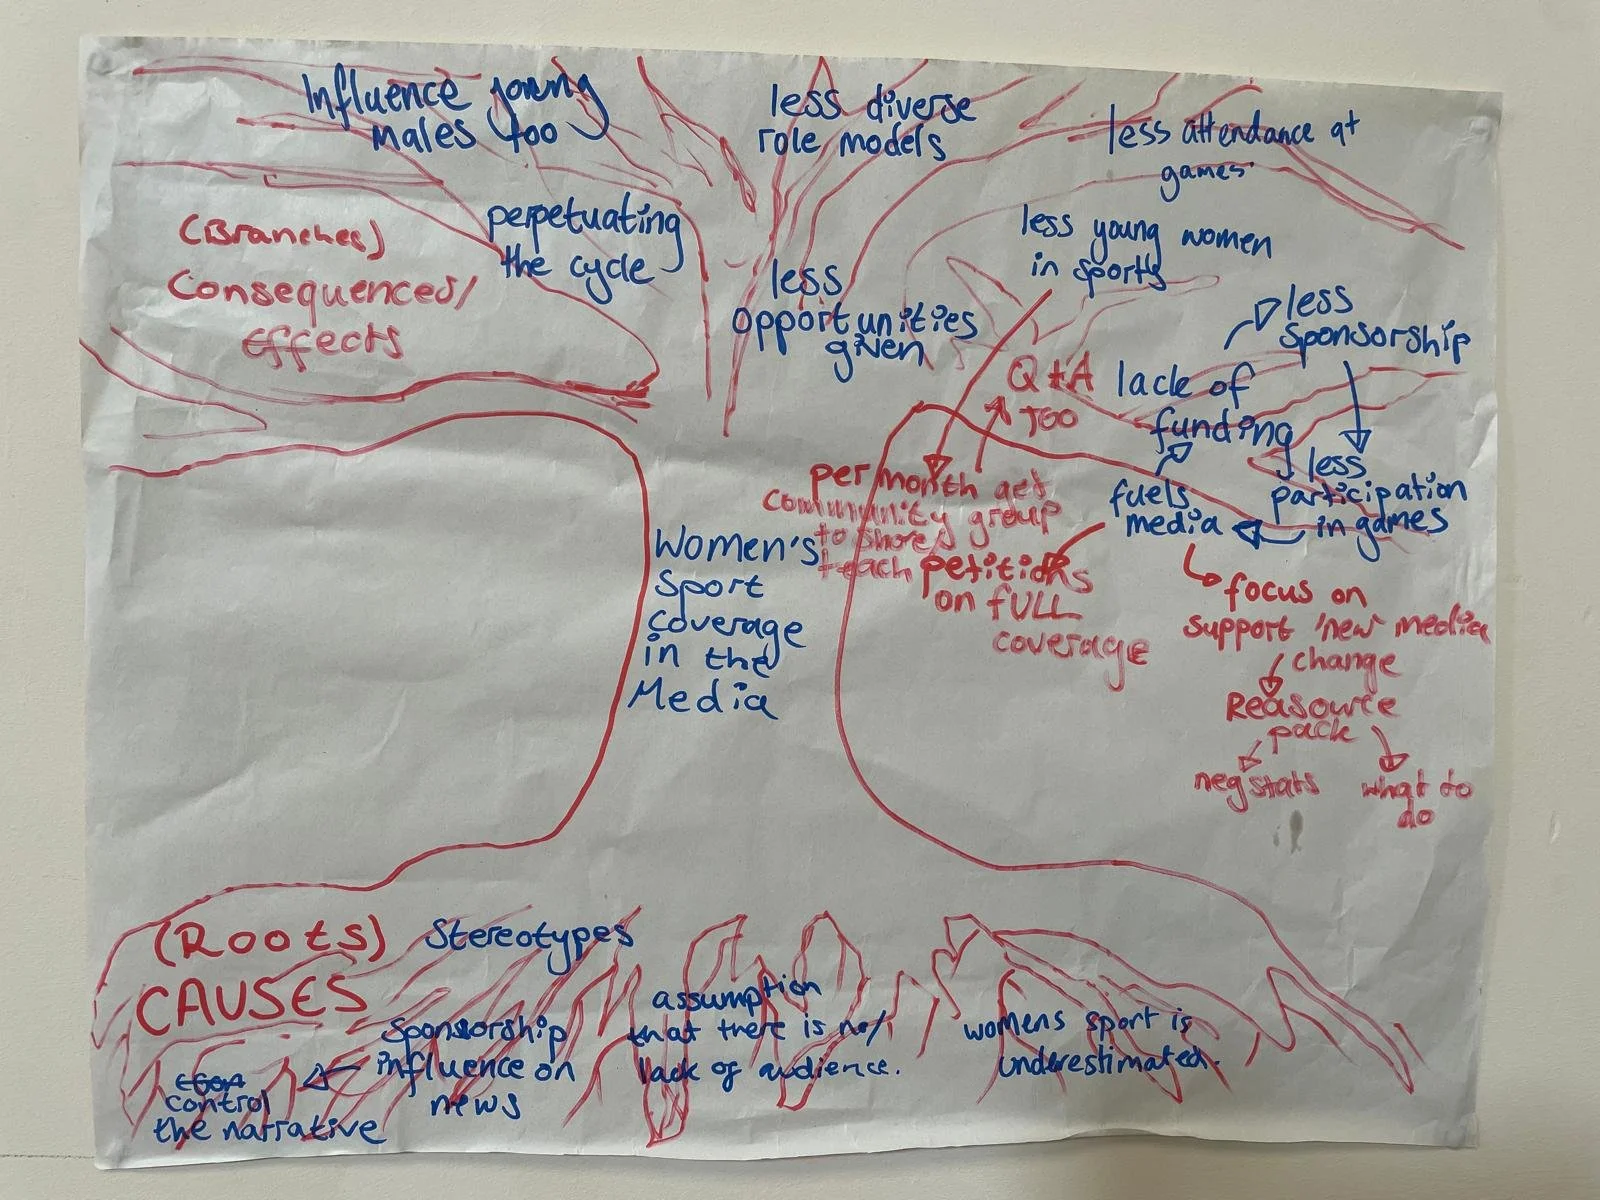 Influence young
males too
less diverse
role models
less attendance at
games
(Branches)
Consequences/
effects
perpetuating
the cycle
less
opportunities
given
less young women
in sports
less
sponsorship
Q+A
TOO
lack of
funding
less
participation
in games
fuels
media
per month get
community group
to share/
teach
petitions
on fULL
coverage
focus on
support 'new' media
change
Reasource
pack
neg stats
what to
do
Women's
Sport
coverage
in the
Media
(Roots)
CAUSES
Stereotypes
Sponsorship
influence on
news
control
the narrative
assumption
that there is no/
lack of audience.
womens sport is
underestimated.